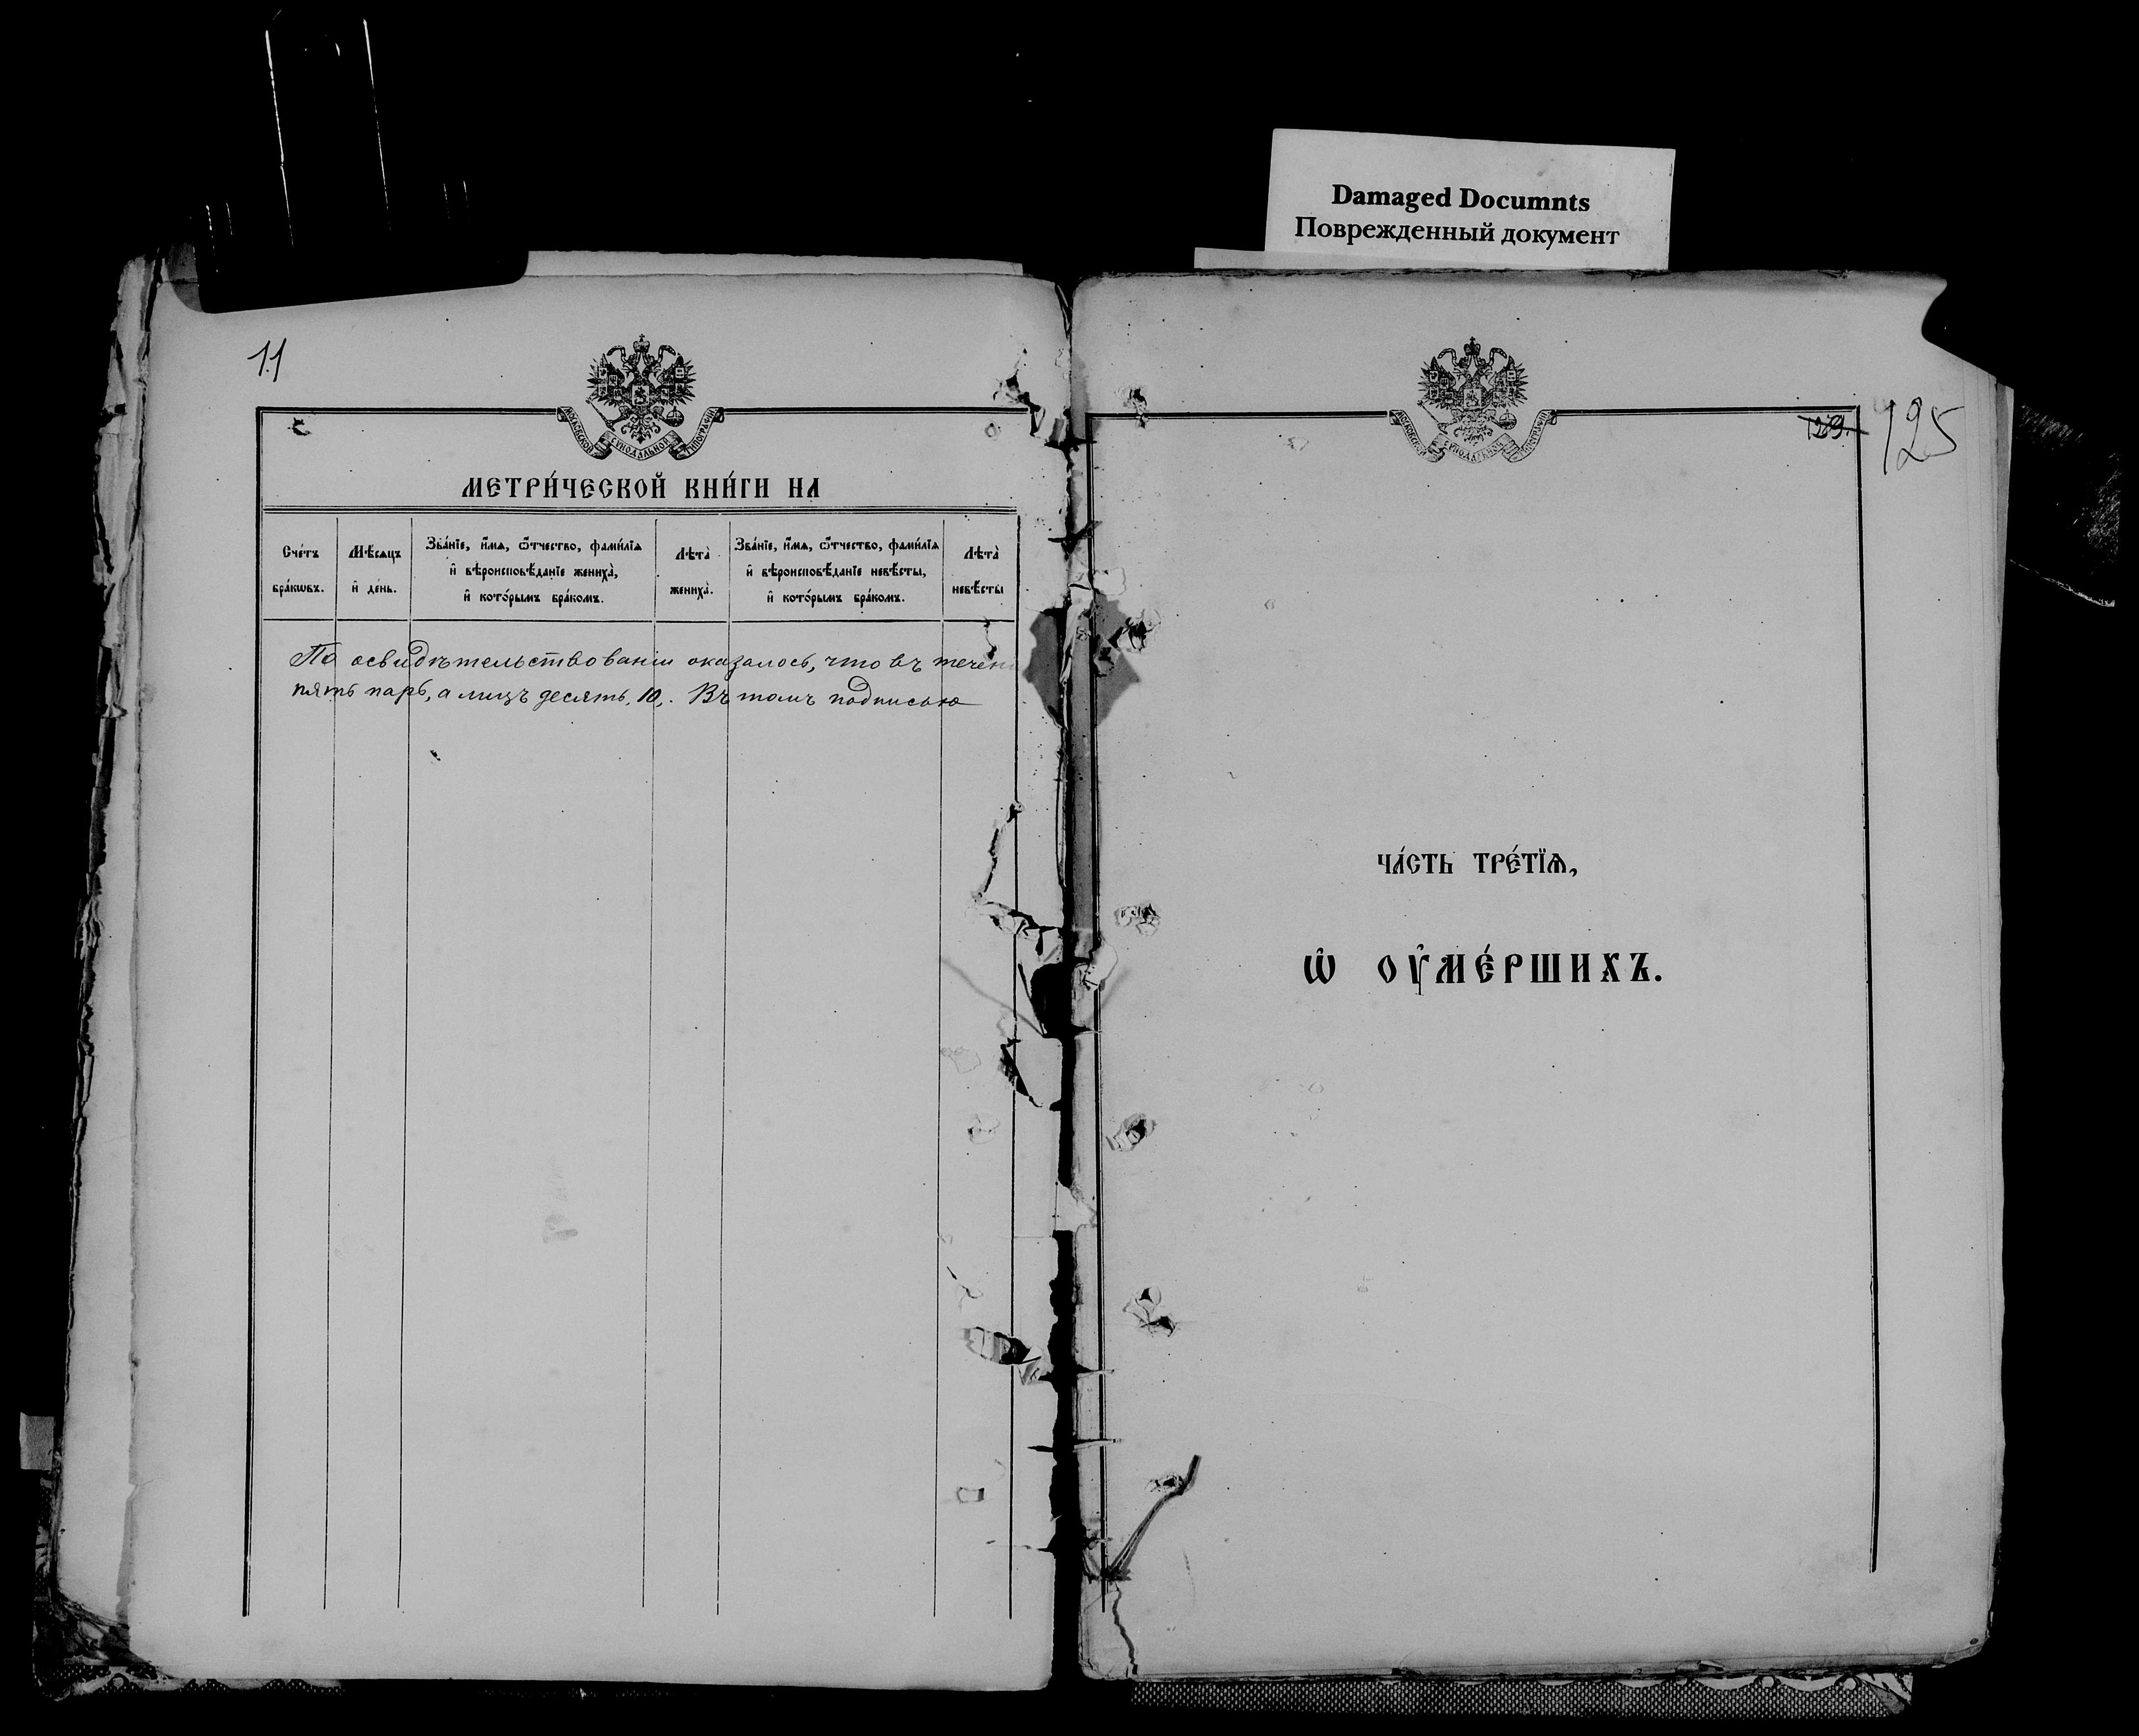 Damaged Documnts
Поврежденный документ
11
МОСКОВСКОЙ СѴНОДАЛЬНОЙ ТИПОГРАФІИ
МЕТРИ́ЧЕСКОЙ КНИ́ГИ НА
Сче́тъ бра́кѡвъ.
Мѣ́сяцъ и҆ де́нь.
Зва́нїе, и҆́мѧ, ѻ҆́тчество, фами́лїѧ
и҆ вѣроисповѣ́данїе жениха̀,
и҆ кото́рымъ бра́комъ.
Лѣта̀ жениха̀.
Зва́нїе, и҆́мѧ, ѻ҆́тчество, фами́лїѧ
и҆ вѣроисповѣ́данїе невѣ́сты,
и҆ кото́рымъ бра́комъ.
Лѣта̀ невѣ́сты
По освидѣтельствованіи оказалось, что въ течен
пять паръ, а лицъ десять, 10,. Въ томъ подписью
МОСКОВСКОЙ СѴНОДАЛЬНОЙ ТИПОГРАФІИ
125
ЧА́СТЬ ТРЕ́ТЇѦ,
Ѽ ОУ҆МЕ́РШИХЪ.